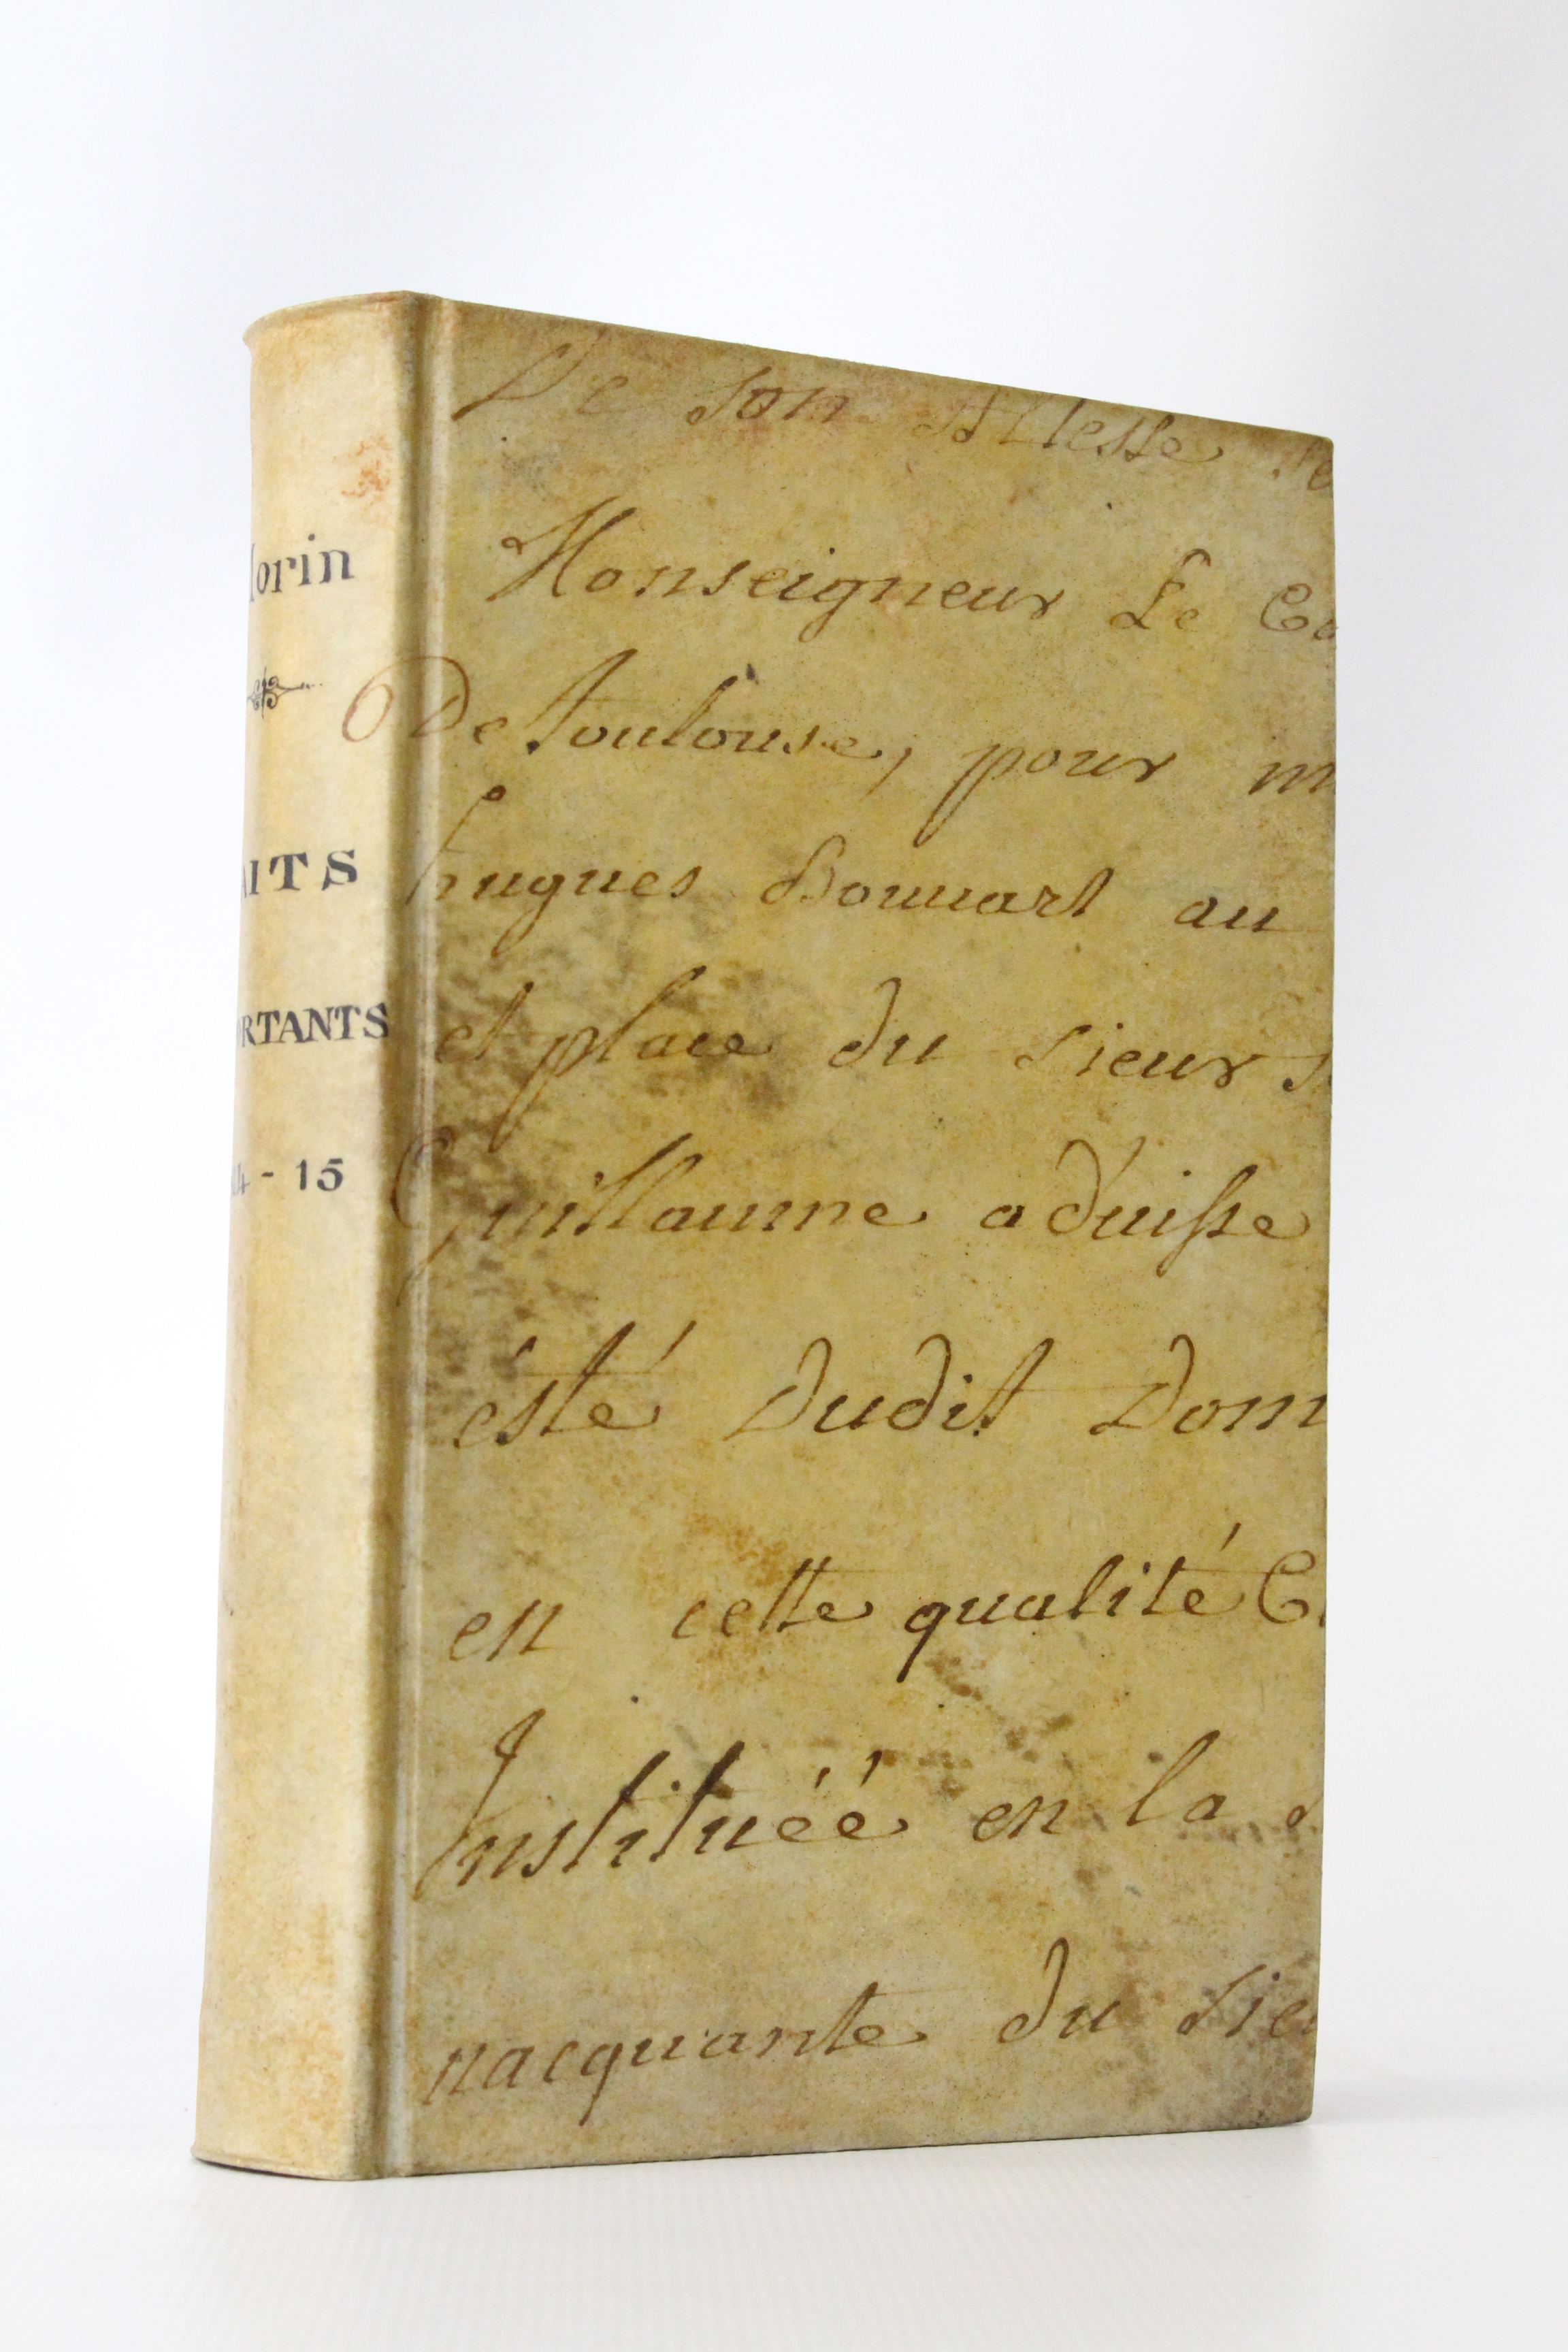 orin
AITS
RTANTS
14 - 15
De son Altesse se
Monseigneur Le Co
De Toulouse, pour m
hugues Bouuart au
et place du sieur
Guillaume aduisse
ésté dudit Dom
en cette qualité
Instituéé en la
nacquante du sieu